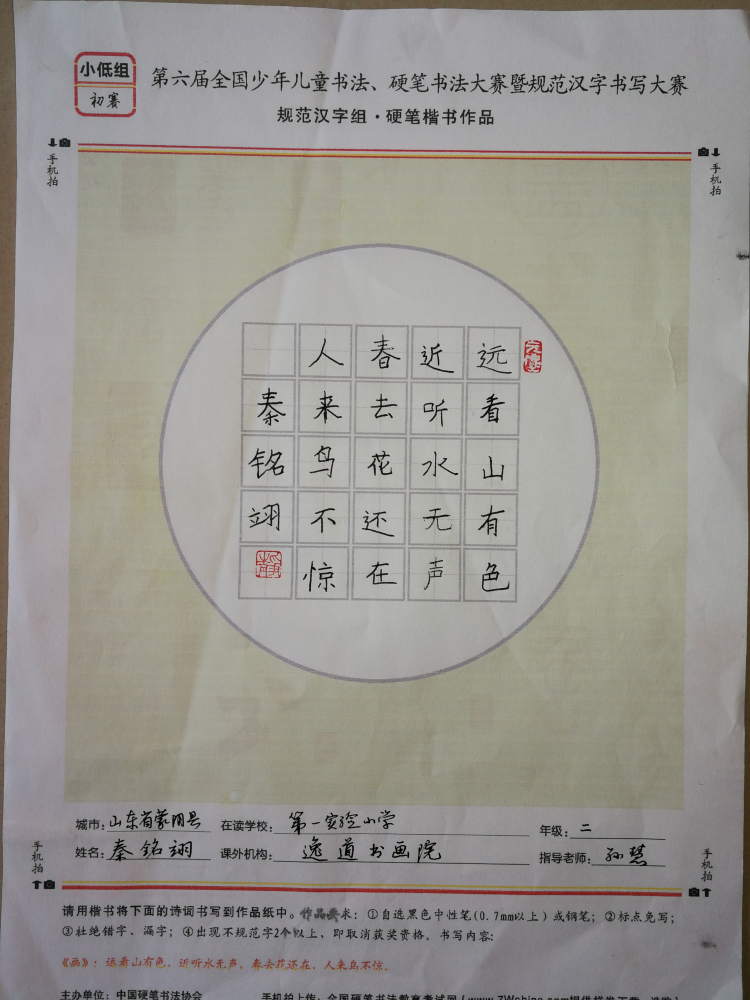 小低组
初赛
第六届全国少年儿童书法、硬笔书法大赛暨规范汉字书写大赛
规范汉字组·硬笔楷书作品
手机拍
手机拍
远看山有色
近听水无声
春去花还在
人来鸟不惊
秦铭翊
城市：山东省蒙阴县 在读学校：第一实验小学 年级：二
姓名：秦铭翊 课外机构：逸道书画院 指导老师：孙慧
手机拍
手机拍
请用楷书将下面的诗词书写到作品纸中。作品要求：①自选黑色中性笔(0.7mm以上)或钢笔；②标点免写；
③杜绝错字、漏字；④出现不规范字2个以上，即取消获奖资格。书写内容：
《画》：远看山有色，近听水无声。春去花还在，人来鸟不惊。
主办单位：中国硬笔书法协会